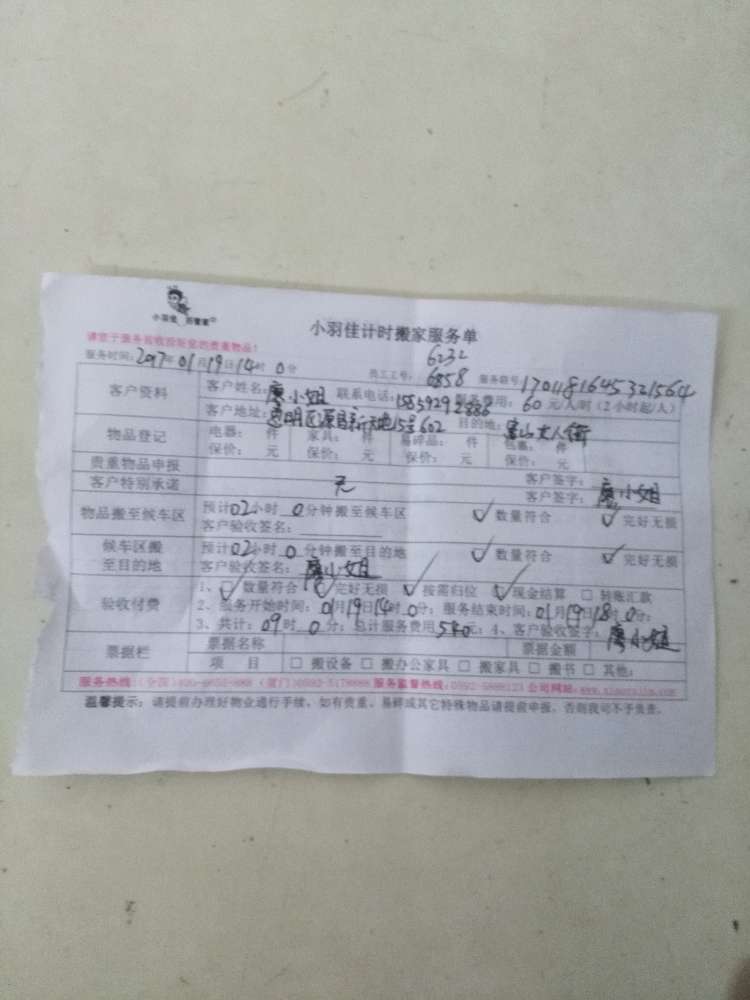 小羽佳 的管家
小羽佳计时搬家服务单
请您于服务验收前验您的贵重物品!
6232
服务时间: 2017年01月19日14时0分 员工工号: 6858 服务编号 1701181645321564
客户资料 客户姓名: 廖小姐 联系电话: 15859292886 服务费用: 60元/人/时(2小时起/人)
客户地址: 思明区源昌新天地15号602 目的地: 莲山女人街
物品登记 电器: 件 家具: 件 易碎品: 件 件
保价: 元 保价: 元 保价: 元 保价: 元
贵重物品申报 客户签字:
客户特别承诺 无 客户签字: 廖小姐
物品搬至候车区 预计02小时0分钟搬至候车区 ✓数量符合 ✓完好无损
客户验收签名:
候车区搬至目的地 预计02小时0分钟搬至目的地 ✓数量符合 ✓完好无损
客户验收签名: 廖小姐
验收付费 1、✓数量符合 ✓完好无损 ✓按需归位 ✓现金结算 □转账汇款
2、服务开始时间: 01月19日14时0分; 服务结束时间: 01月19日18时0分;
3、共计: 09时0分; 总计服务费用540元; 4、客户验收签字: 廖小姐
票据栏 票据名称 票据金额
项 目 □搬设备 □搬办公家具 □搬家具 □搬书 □其他:
服务热线: (全国) (厦门) 服务监督热线: 公司网站:
温馨提示: 请提前办理好物业通行手续, 如有贵重、易碎或其它特殊物品请提前申报, 否则我司不予负责。